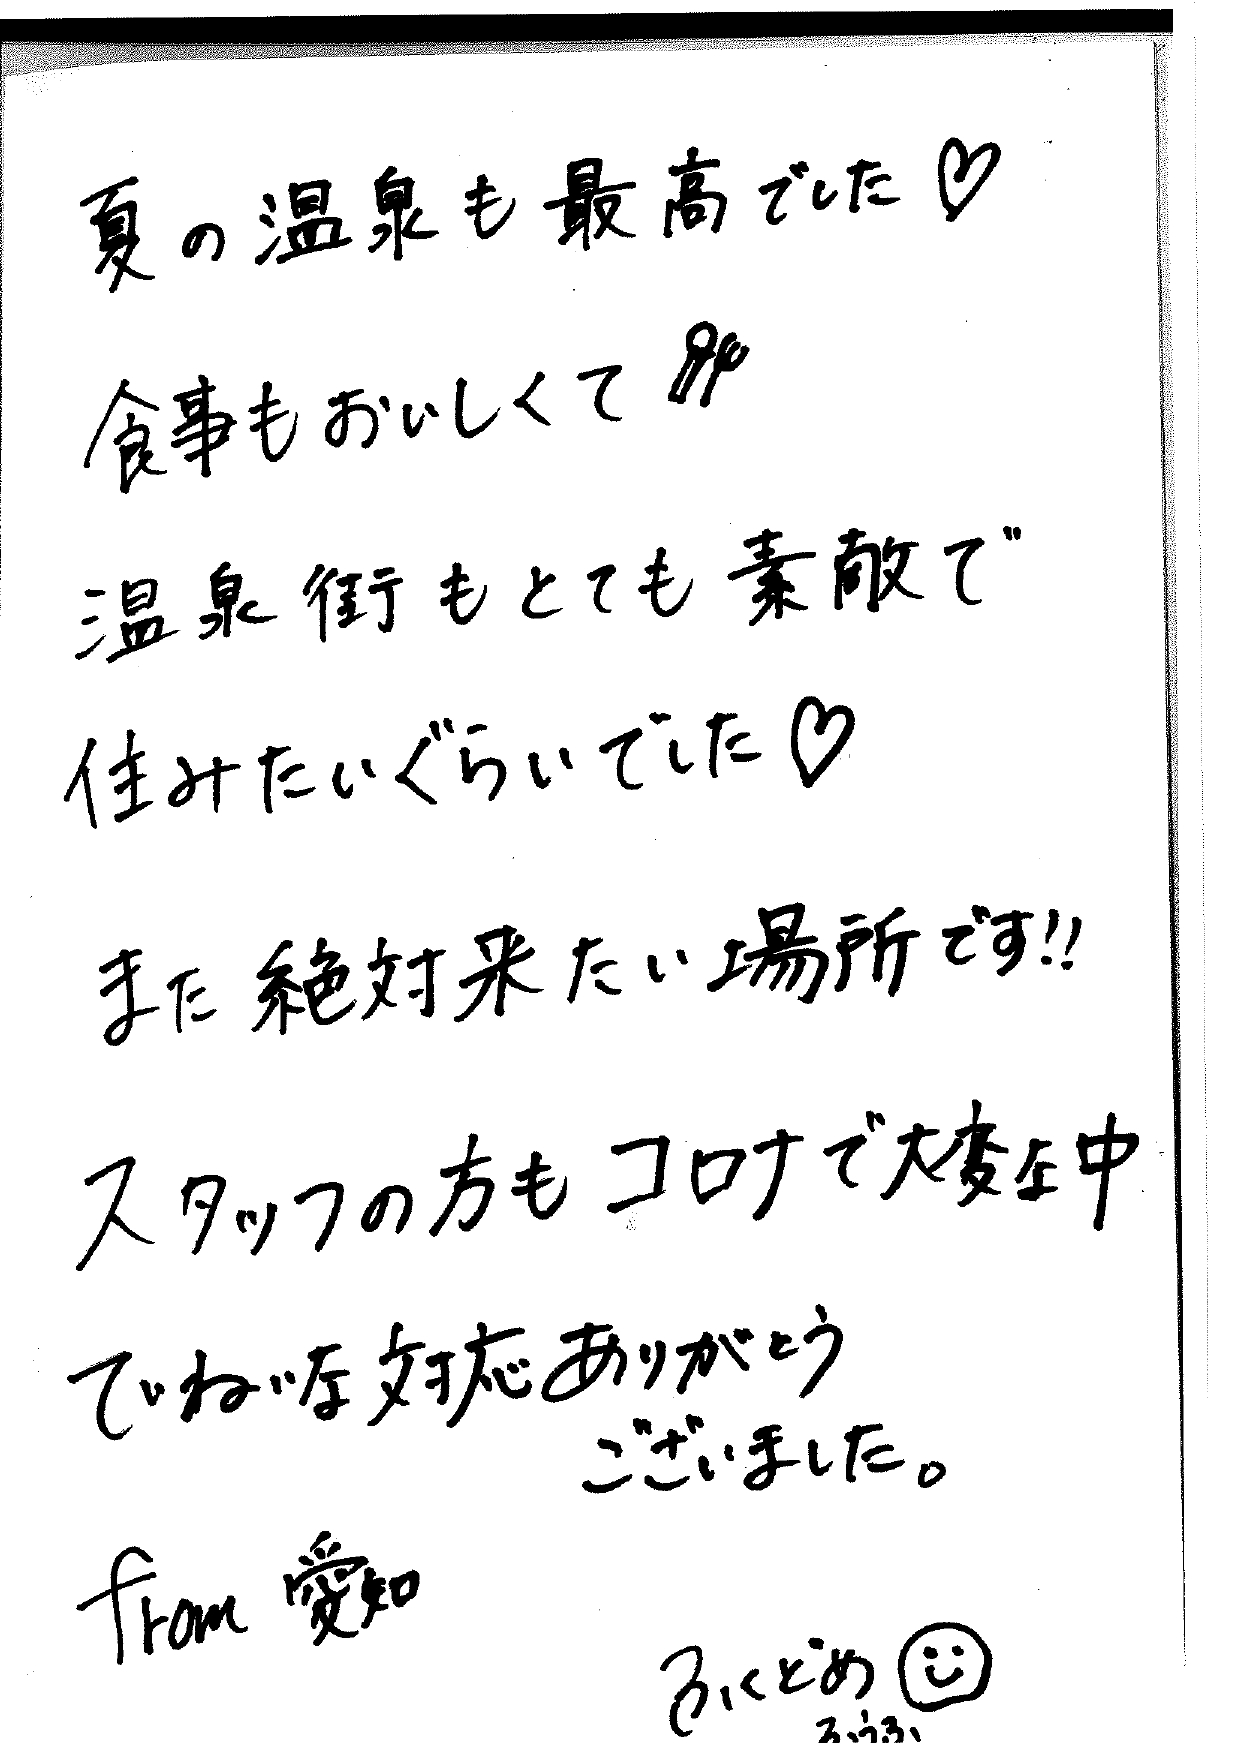 夏の温泉も最高でした♡
食事もおいしくて
温泉街もとても素敵で
住みたいぐらいでした♡
また絶対来たい場所です!!
スタッフの方もコロナで大変な中
ていねいな対応ありがとう
ございました。
from 愛知
ふくどめ
ふうふ